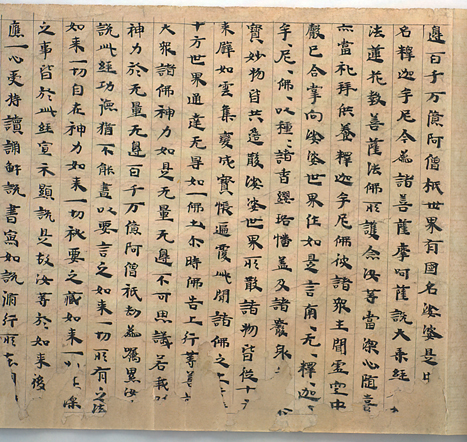 邊百千万億阿僧祇世界有國名娑婆是中
名釋迦牟尼今為諸菩薩摩訶薩說大乘經
法蓮花教菩薩法佛所護念汝等當深心隨喜
亦當礼拜供養釋迦牟尼佛彼諸衆生聞虛空中
聲已合掌向娑婆世界作如是言南无釋迦
牟尼佛以種種諸香纓珞幡盖及諸嚴身
寶妙物皆共遥散娑婆世界所散諸物皆從十方
来譬如雲集變成寶帳遍覆此間諸佛之上
十方世界通達无㝵如一佛土尒時佛告上行等菩
大衆諸佛神力如是无量无邊不可思議若我以
神力於无量无邊百千万億阿僧祇劫為属累汝
說此經功德猶不能盡以要言之如来一切所有之法
如来一切自在神力如来一切秘要之藏如来一切甚深
之事皆於此經宣示顯說是故汝等於如来後
應一心受持讀誦解說書寫如說脩行所在